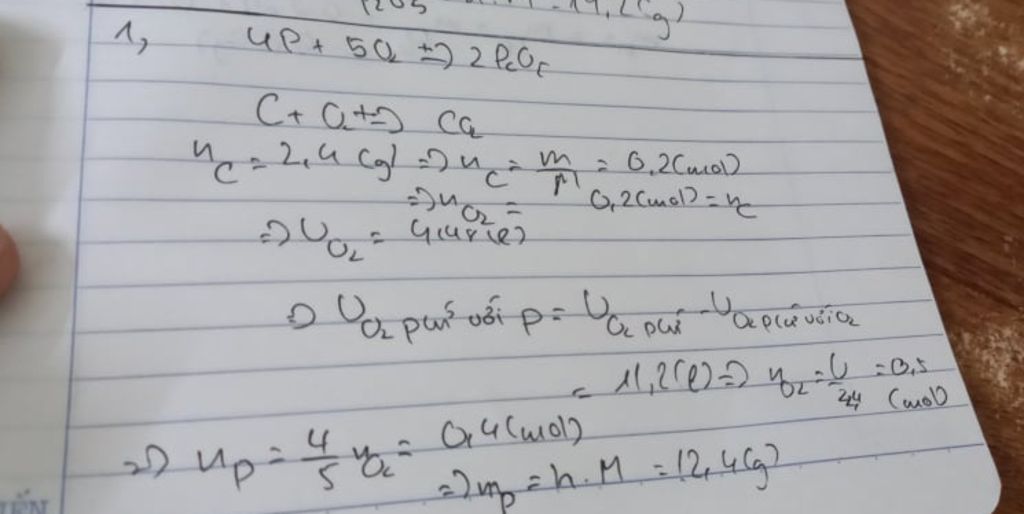 1,
4P + 5O₂ => 2P₂O₅
C + O₂ => CO₂
n_C = 2,4 (g) => n_C = m/M = 0,2 (mol)
=> n_O₂ = 0,2 (mol) = n_C
=> V_O₂ = 4,48 (l)
=> V_O₂ pứ với P = V_O₂ pứ - V_O₂ pứ với O₂
= 11,2 (l) => n_O₂ = V/22,4 = 0,5 (mol)
=> n_P = 4/5 n_O₂ = 0,4 (mol)
=> m_P = n.M = 12,4 (g)